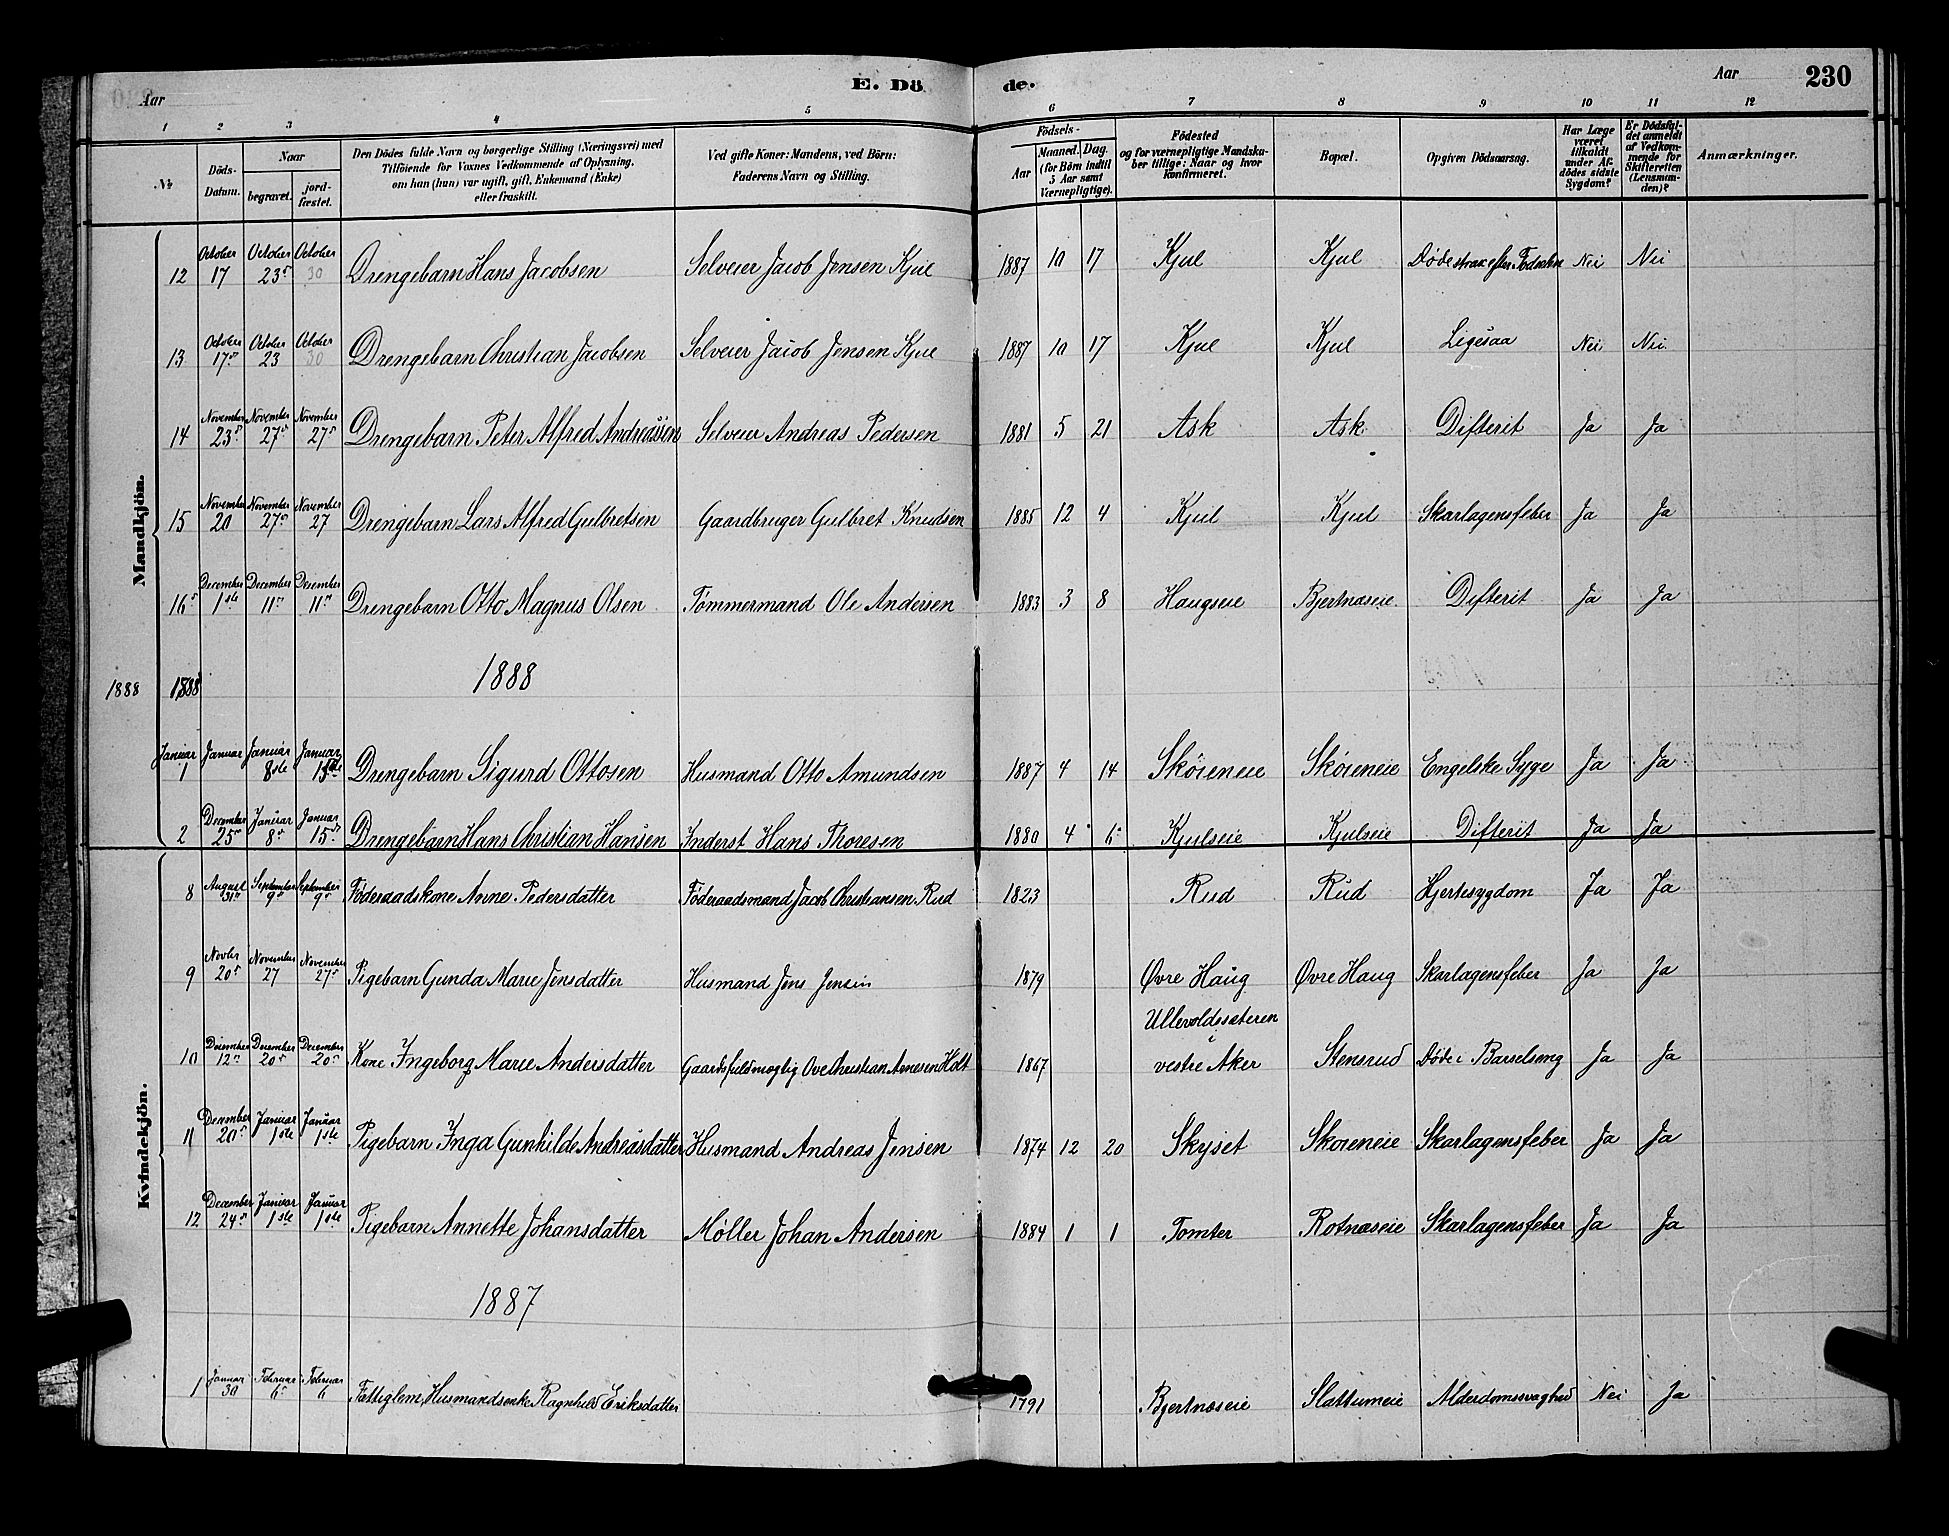 Aar
E. Dö
de.
Aar
230
1 2 3 4 5 6 7 8 9 10 11 12
№
Döds-Datum.
Naar
begravet.
jord-fæstet.
Den Dödes fulde Navn og borgerlige Stilling (Næringsvei) med
Tilföiende for Voxnes Vedkommende af Oplysning,
om han (hun) var ugift, gift, Enkemand (Enke)
eller fraskilt.
Ved gifte Koner: Mandens, ved Börn:
Faderens Navn og Stilling.
Födsels-
Aar
Maaned. Dag.
(for Börn indtil
5 Aar samt
Værnepligtige).
Födested
og for værnepligtige Mandska-
ber tillige: Naar og hvor
Konfirmeret.
Bopæl.
Opgiven Dödsaarsag.
Har Læge
været
tilkaldt
under Af-
dödes sidste
Sygdom?
Er Dödsfal-
det anmeldt
af Vedkom-
mende for
Skifteretten
(Lensman-
den)?
Anmærkninger.
Mandkjön.
12 October 17 October 23 October 30 Drengebarn Hans Jacobsen Selveier Jacob Jensen Kjul 1887 10 17 Kjul Kjul Døde strax efter Fødselen Nei Nei
13 October 17 October 23 October 30 Drengebarn Christian Jacobsen Selveier Jacob Jensen Kjul 1887 10 17 Kjul Kjul Ligesaa Nei Nei
14 November 23 November 27 November 27 Drengebarn Peter Alfred Andreassen Selveier Andreas Pedersen 1881 5 21 Ask Ask Difterit Ja Ja
15 November 20 November 27 November 27 Drengebarn Lars Alfred Gulbretsen Gaardbruger Gulbret Knudsen 1885 12 4 Kjul Kjul Skarlagensfeber Ja Ja
16 December 1ste December 11 December 11 Drengebarn Otto Magnus Olsen Tømmermand Ole Andersen 1883 3 8 Haugseie Bjertnæseie Difterit Ja Ja
1888 1888 1888
Januar 1 Januar Januar 8de Januar 15de Drengebarn Sigurd Ottosen Husmand Otto Amundsen 1887 4 14 Skøieneie Skøieneie Engelske Syge Ja Ja
2 December 25 Januar 8 Januar 15 Drengebarn Hans Christian Hansen Inderst Hans Thoresen 1880 4 6 Kjulseie Kjulseie Difterit Ja Ja
Kvindekjön.
8 August 31 September 9 September 9 Føderaadskone Anne Pedersdatter Føderaadsmand Jacob Christiansen Rud 1823 Rud Rud Hjertesygdom Ja Ja
9 Novbr 20 November 27 November 27 Pigebarn Gunda Marie Jensdatter Husmand Jens Jensen 1879 Øvre Haug Øvre Haug Skarlagensfeber Ja Ja
Ullevoldssæteren i
10 December 12 December 20 December 20 Kone Ingeborg Marie Andersdatter Gaardsfuldmægtig Ove Christian Arnesen Holt 1867 vestre Aker Stensrud Døde i Barselseng Ja Ja
11 December 20 Januar 1ste Januar 1ste Pigebarn Inga Gunhilde Andreasdatter Husmand Andreas Jensen 1874 12 20 Skyset Skøieneie Skarlagensfeber Ja Ja
12 December 24 Januar 1ste Januar 1ste Pigebarn Annette Johansdatter Møller Johan Andersen 1884 1 1 Tomter Rotnæseie Skarlagensfeber Ja Ja
1887
1 Januar 30 Februar 6 Februar 6 Fattiglem, Husmandsenke Ragnhild Eriksdatter 1791 Bjertnæseie Slattumeie Alderdomssvaghed Nei Ja